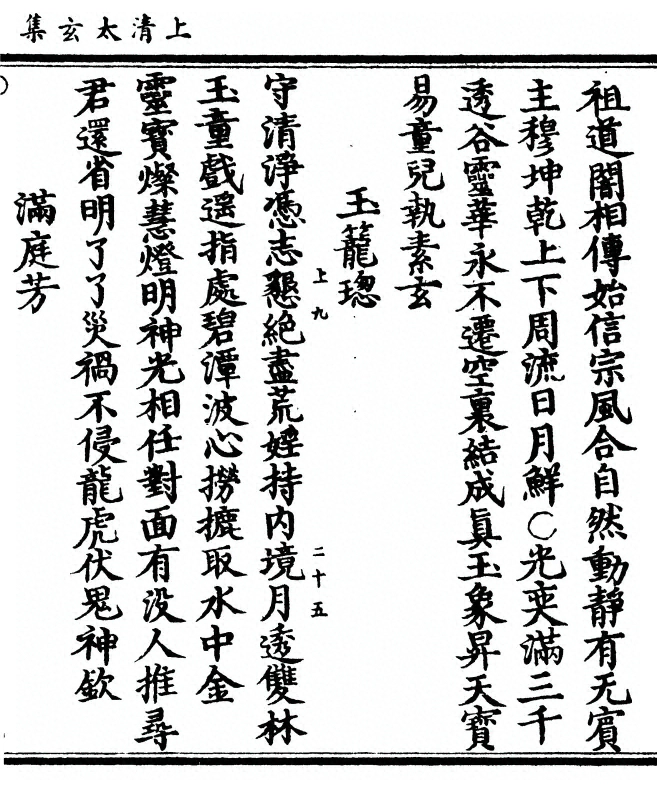 上清太玄集
祖道闇相傳始信宗風合自然動靜有无賓
主穆坤乾上下周流日月鮮〇光奭滿三千
透谷靈華永不遷空裏結成眞玉象昇天寶
易童兒執素玄
玉籠璁
上九
二十五
守清淨憑志懇絕盡荒婬持內境月透雙林
玉童戲遥指處碧潭波心撈摝取水中金
靈寶燦慧燈明神光相任對面有没人推尋
君還省明了了災禍不侵龍虎伏鬼神欽
滿庭芳